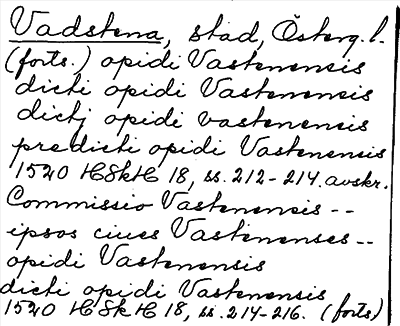 Vadstena, stad, Österg.l.
(forts.) opidi Vastenensis
dicti opidi Vastenensis
dictj opidi vastenensis
predicti opidi Vastenensis
1520 HSkH 18, ss. 212-214. avskr.
Commissio Vastenensis --
ipsos ciues Vastenenses --
opidi Vastenensis
dicti opidi Vastenensis
1520 HSkH 18, ss. 214-216. (forts.)